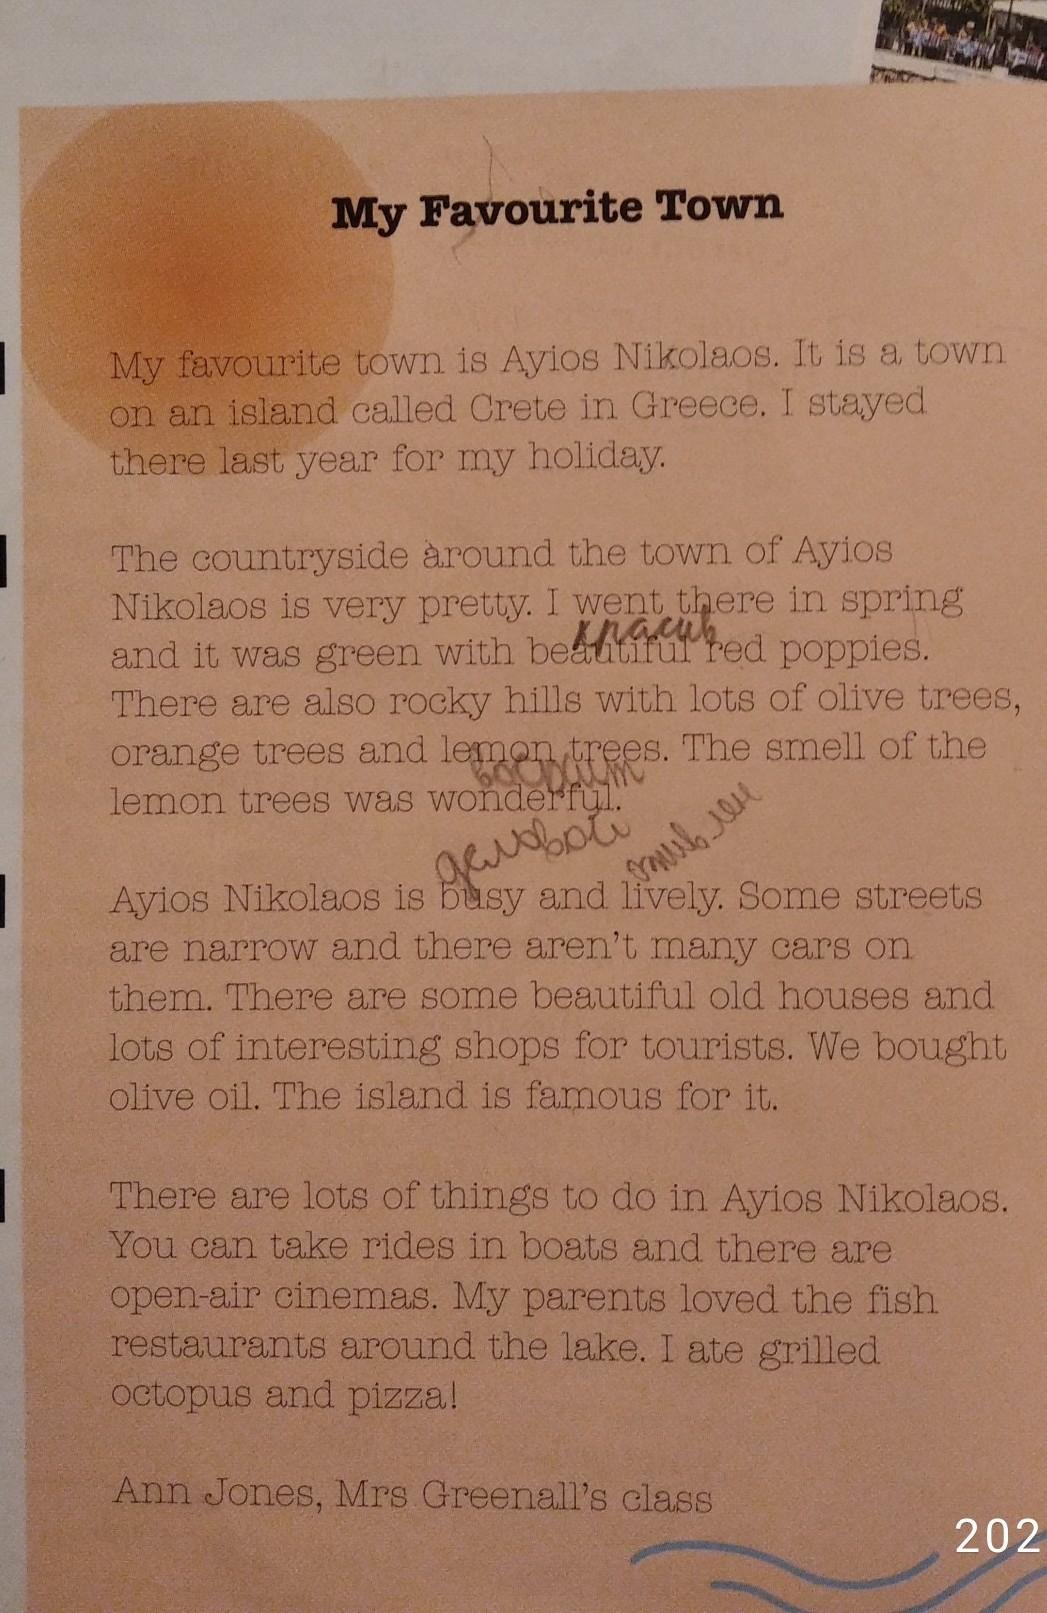 My Favourite Town
My favourite town is Ayios Nikolaos. It is a town
on an island called Crete in Greece. I stayed
there last year for my holiday.
The countryside around the town of Ayios
Nikolaos is very pretty. I went there in spring
красив
and it was green with beautiful red poppies.
There are also rocky hills with lots of olive trees,
orange trees and lemon trees. The smell of the
lemon trees was wonderful.
Ayios Nikolaos is busy and lively. Some streets
are narrow and there aren't many cars on
them. There are some beautiful old houses and
lots of interesting shops for tourists. We bought
olive oil. The island is famous for it.
There are lots of things to do in Ayios Nikolaos.
You can take rides in boats and there are
open-air cinemas. My parents loved the fish
restaurants around the lake. I ate grilled
octopus and pizza!
Ann Jones, Mrs Greenall's class
202